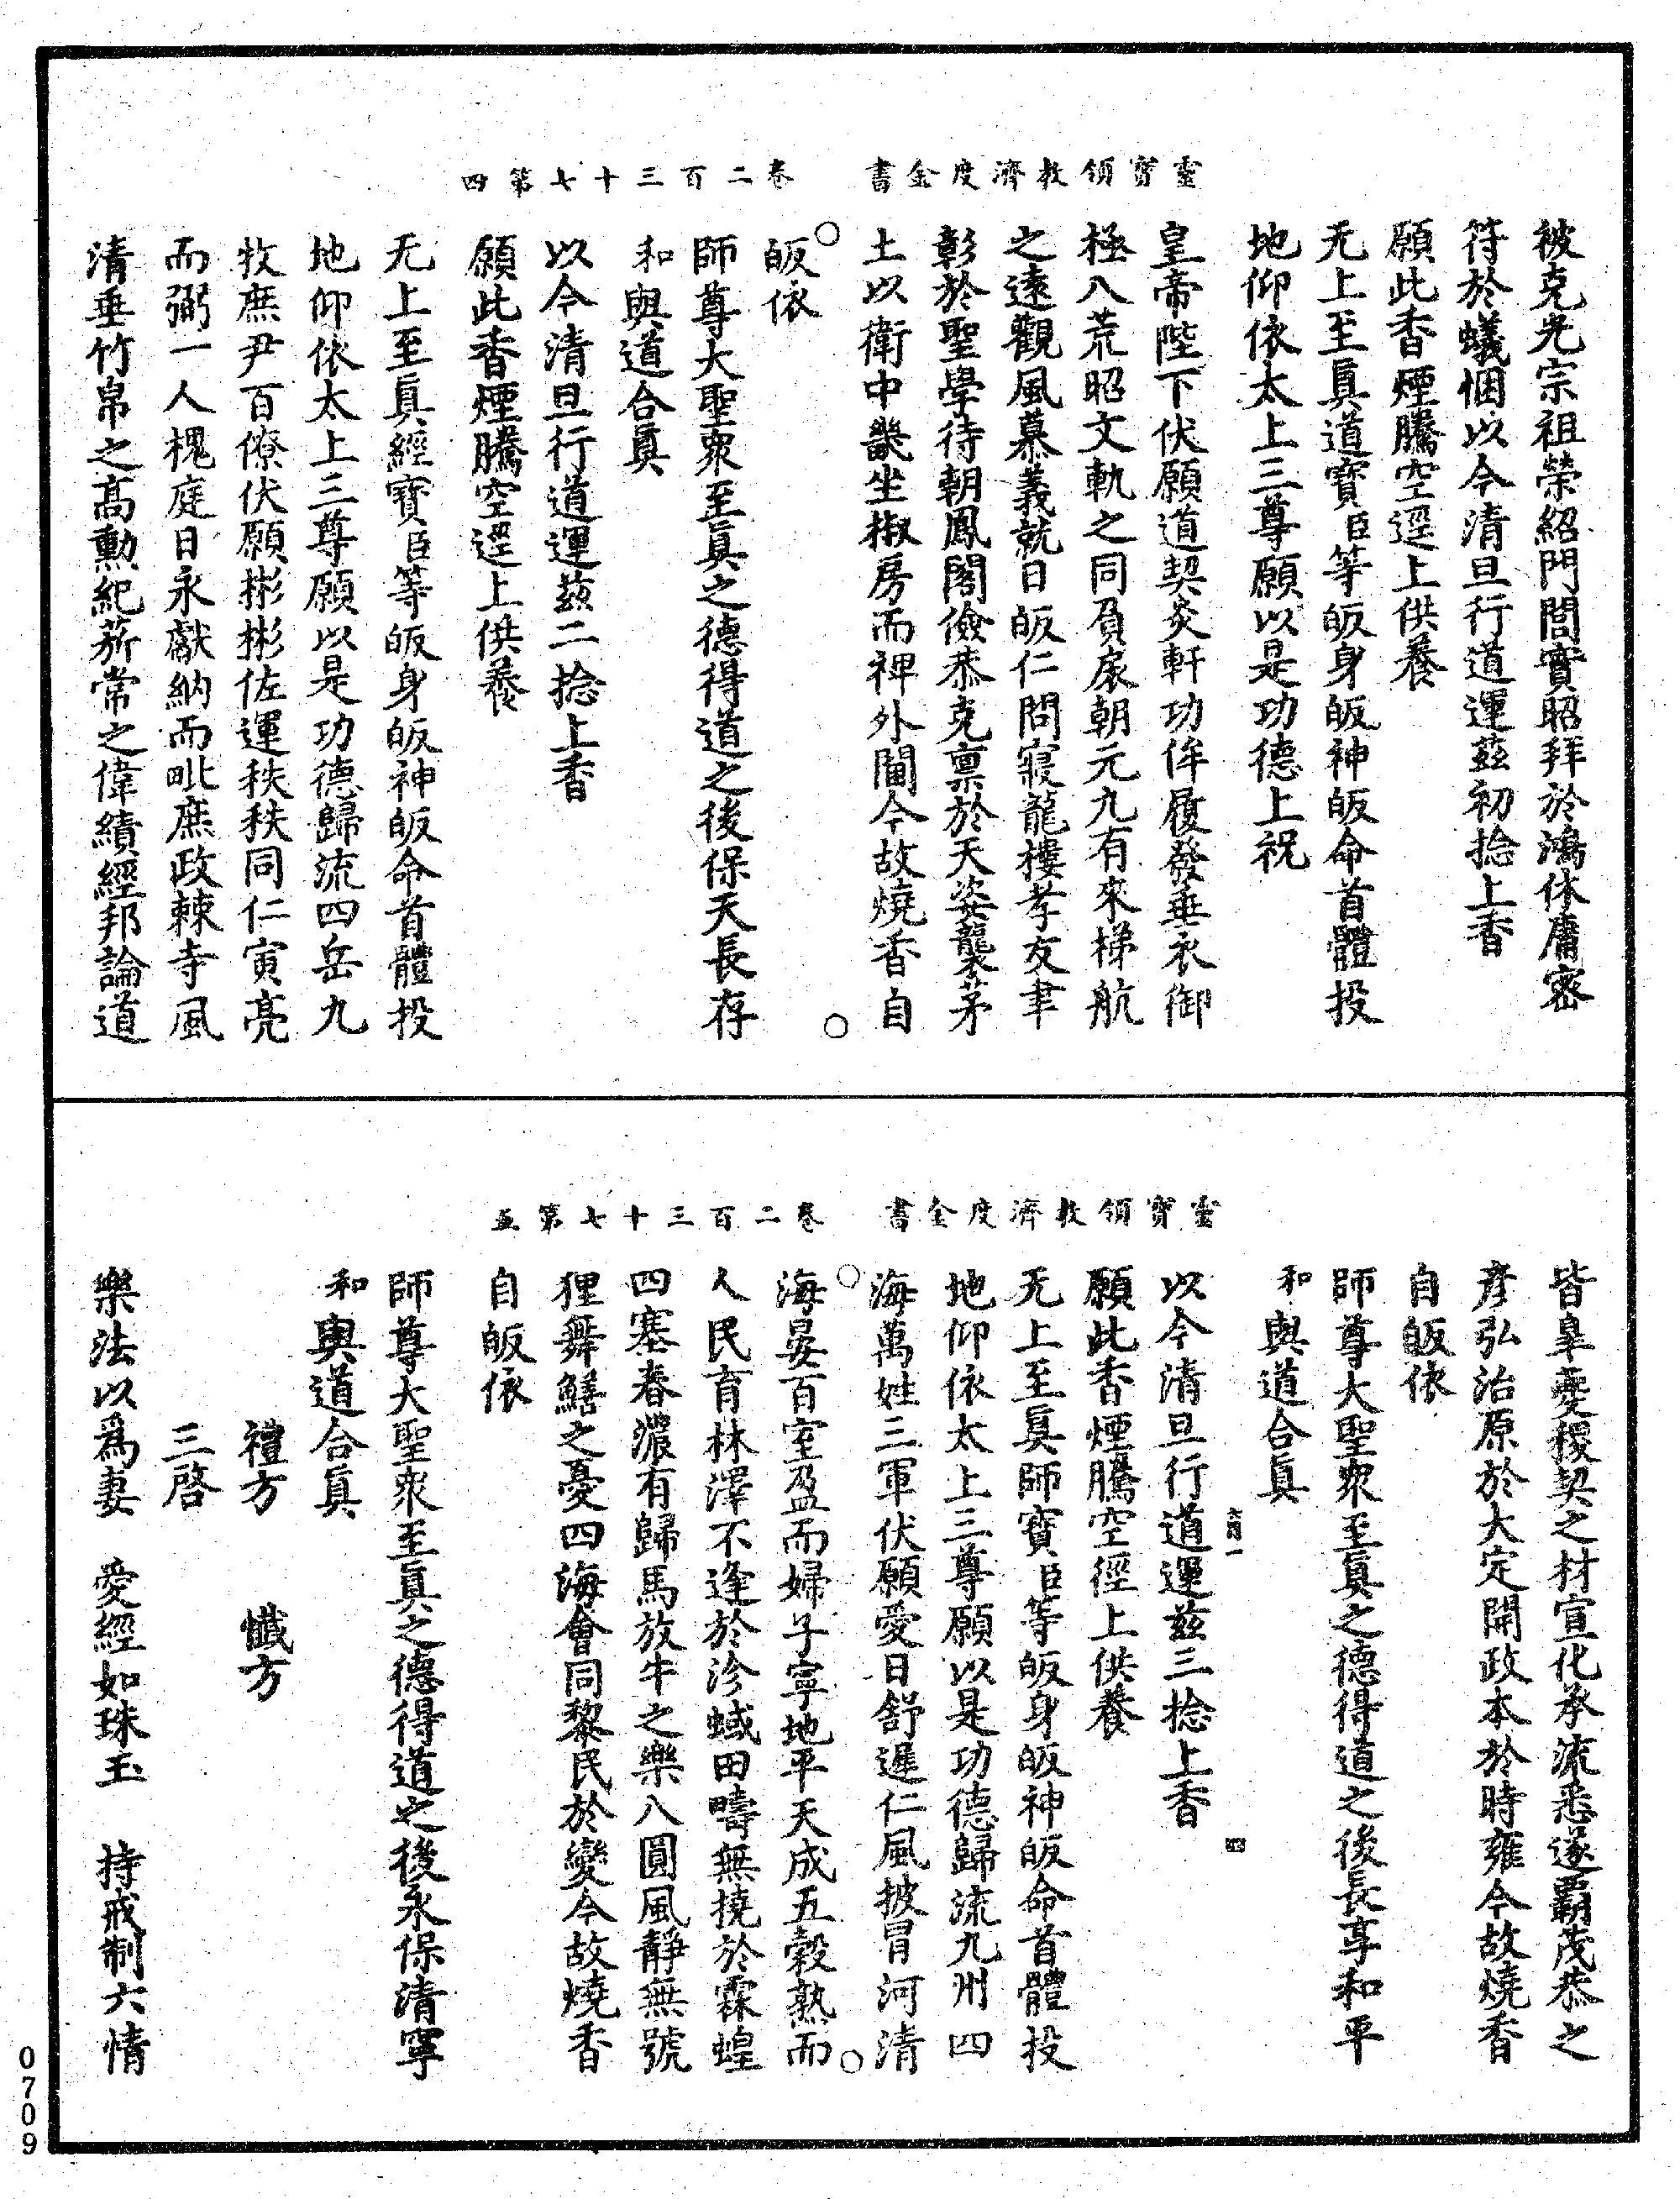 靈寶領教濟度金書　卷二百三十七第四
被克光宗祖榮紹門閭實昭拜於鴻休庸密
符於蟻悃以今清旦行道運茲初捻上香
願此香煙騰空逕上供養
无上至眞道寶臣等皈身皈神皈命首體投
地仰依太上三尊願以是功德上祝
皇帝陛下伏願道契炎軒功侔履發垂衣御
極八荒昭文軌之同負扆朝元九有來梯航
之遠觀風慕義就日皈仁問寢龍樓孝友聿
彰於聖學待朝鳳閣儉恭克稟於天姿襲茅
土以衛中畿坐椒房而裨外閫今故燒香自
皈依
師尊大聖衆至眞之德得道之後保天長存
和與道合眞
以今清旦行道運茲二捻上香
願此香煙騰空逕上供養
无上至眞經寶臣等皈身皈神皈命首體投
地仰依太上三尊願以是功德歸流四岳九
牧庶尹百僚伏願彬彬佐運秩秩同仁寅亮
而弼一人槐庭日永獻納而毗庶政棘寺風
清垂竹帛之高勳紀旂常之偉績經邦論道
靈寶領教濟度金書　卷二百三十七第五
皆皐夔稷契之材宣化承流悉遂霸茂恭之
彥弘治原於大定開政本於時雍今故燒香
自皈依
師尊大聖衆至眞之德得道之後長享和平
和與道合眞
以今清旦行道運茲三捻上香
願此香煙騰空徑上供養
无上至眞師寶臣等皈身皈神皈命首體投
地仰依太上三尊願以是功德歸流九州四
海萬姓三軍伏願愛日舒遲仁風披冒河清
海晏百室盈而婦子寧地平天成五穀熟而
人民育林澤不逢於沴蜮田疇無撓於霖蝗
四塞春濃有歸馬放牛之樂八圓風靜無號
狸舞鱔之憂四海會同黎民於變今故燒香
自皈依
師尊大聖衆至眞之德得道之後永保清寧
和與道合眞
禮方　懺方
三啓
樂法以爲妻　愛經如珠玉　持戒制六情
0709